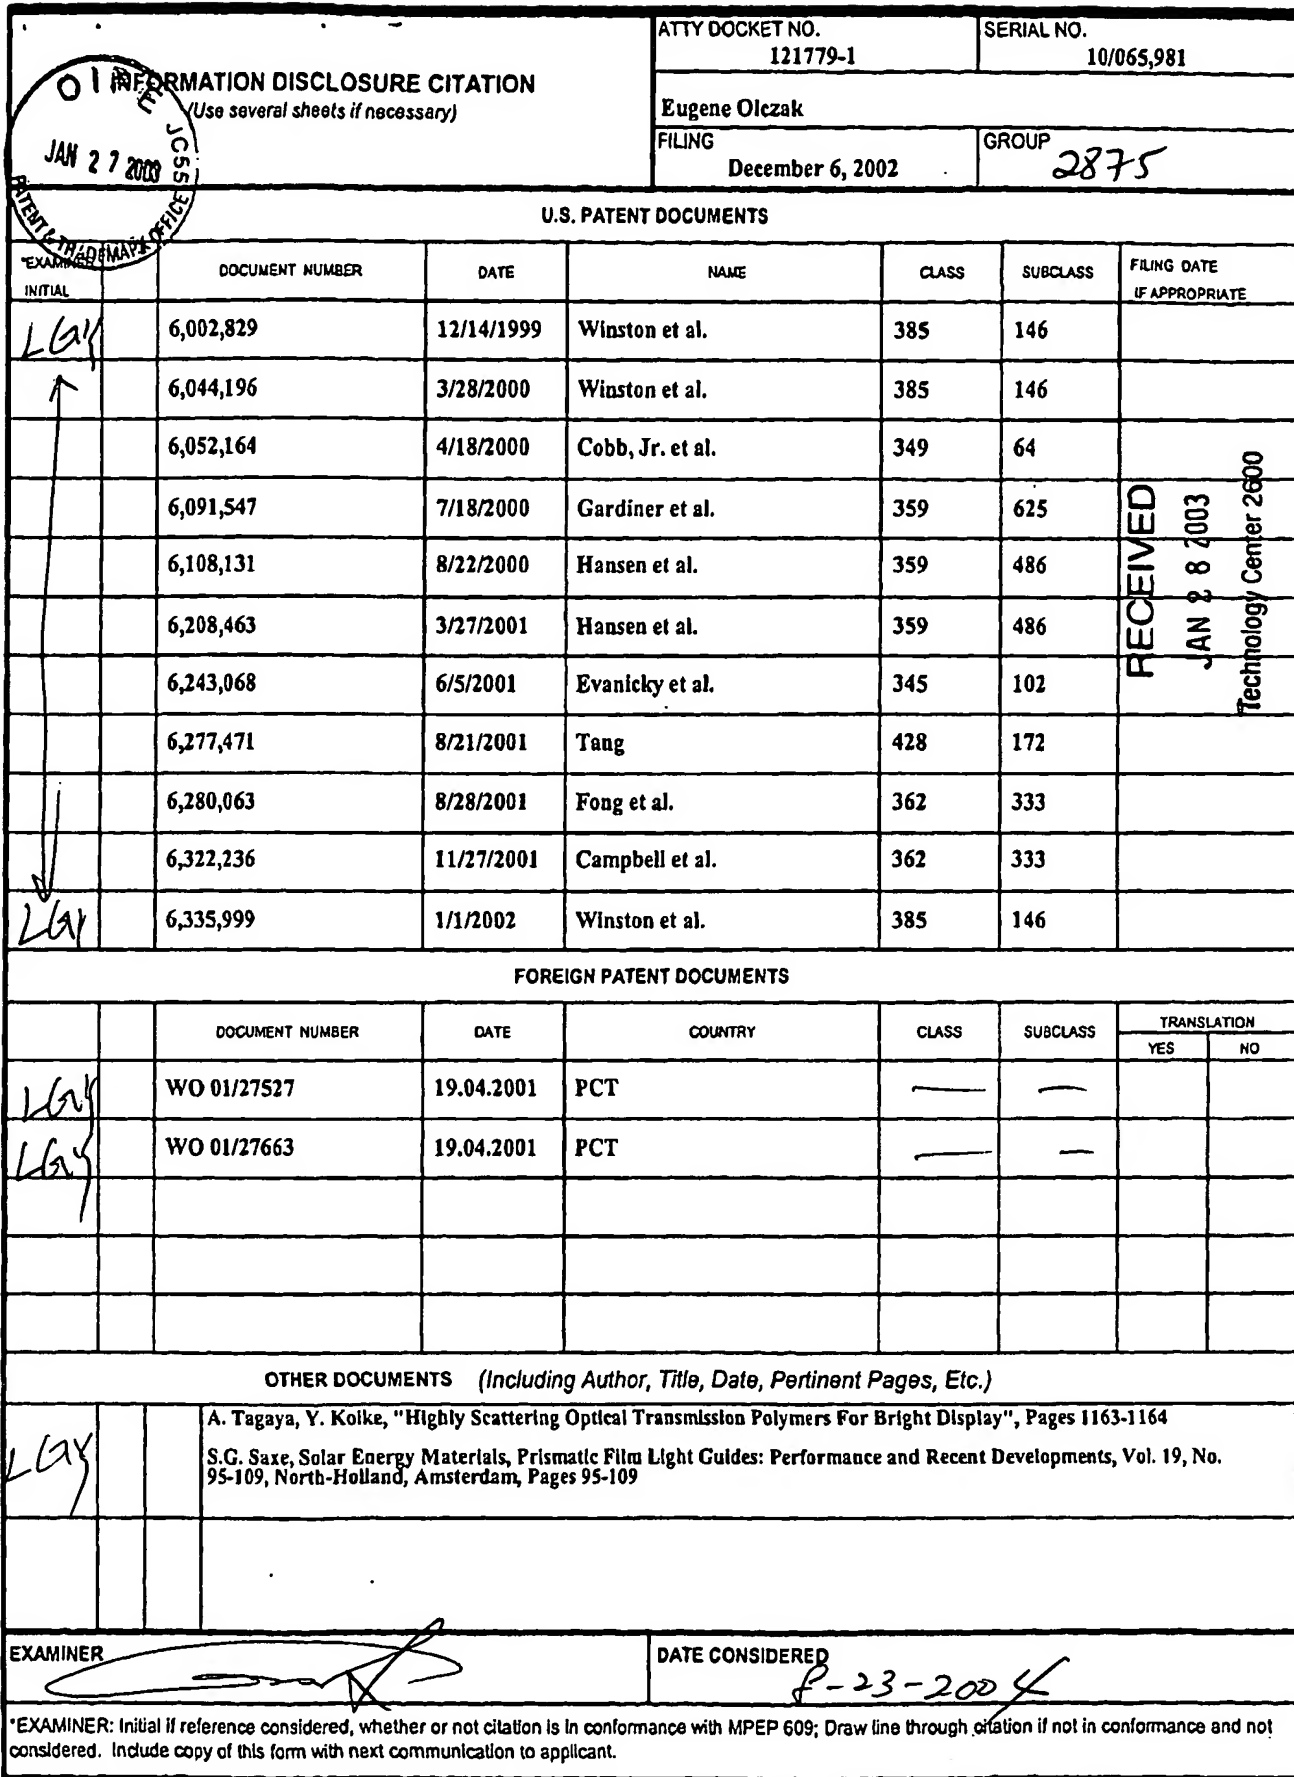 ATTY DOCKET NO.
121779-1
SERIAL NO.
10/065,981
INFORMATION DISCLOSURE CITATION
(Use several sheets if necessary)
Eugene Olczak
FILING
December 6, 2002
GROUP
2875
O I P E JC55
JAN 2 7 2003
PATENT & TRADEMARK OFFICE
U.S. PATENT DOCUMENTS
*EXAMINER INITIAL DOCUMENT NUMBER DATE NAME CLASS SUBCLASS FILING DATE IF APPROPRIATE
LGY 6,002,829 12/14/1999 Winston et al. 385 146
6,044,196 3/28/2000 Winston et al. 385 146
6,052,164 4/18/2000 Cobb, Jr. et al. 349 64
6,091,547 7/18/2000 Gardiner et al. 359 625
6,108,131 8/22/2000 Hansen et al. 359 486
6,208,463 3/27/2001 Hansen et al. 359 486
6,243,068 6/5/2001 Evanicky et al. 345 102
6,277,471 8/21/2001 Tang 428 172
6,280,063 8/28/2001 Fong et al. 362 333
6,322,236 11/27/2001 Campbell et al. 362 333
LGY 6,335,999 1/1/2002 Winston et al. 385 146
RECEIVED
JAN 2 8 2003
Technology Center 2600
FOREIGN PATENT DOCUMENTS
DOCUMENT NUMBER DATE COUNTRY CLASS SUBCLASS TRANSLATION
YES NO
LGY WO 01/27527 19.04.2001 PCT — —
LGY WO 01/27663 19.04.2001 PCT — —
OTHER DOCUMENTS (Including Author, Title, Date, Pertinent Pages, Etc.)
LGY
A. Tagaya, Y. Koike, "Highly Scattering Optical Transmission Polymers For Bright Display", Pages 1163-1164
S.G. Saxe, Solar Energy Materials, Prismatic Film Light Guides: Performance and Recent Developments, Vol. 19, No.
95-109, North-Holland, Amsterdam, Pages 95-109
EXAMINER
DATE CONSIDERED
8-23-2004
*EXAMINER: Initial if reference considered, whether or not citation is in conformance with MPEP 609; Draw line through citation if not in conformance and not
considered. Include copy of this form with next communication to applicant.